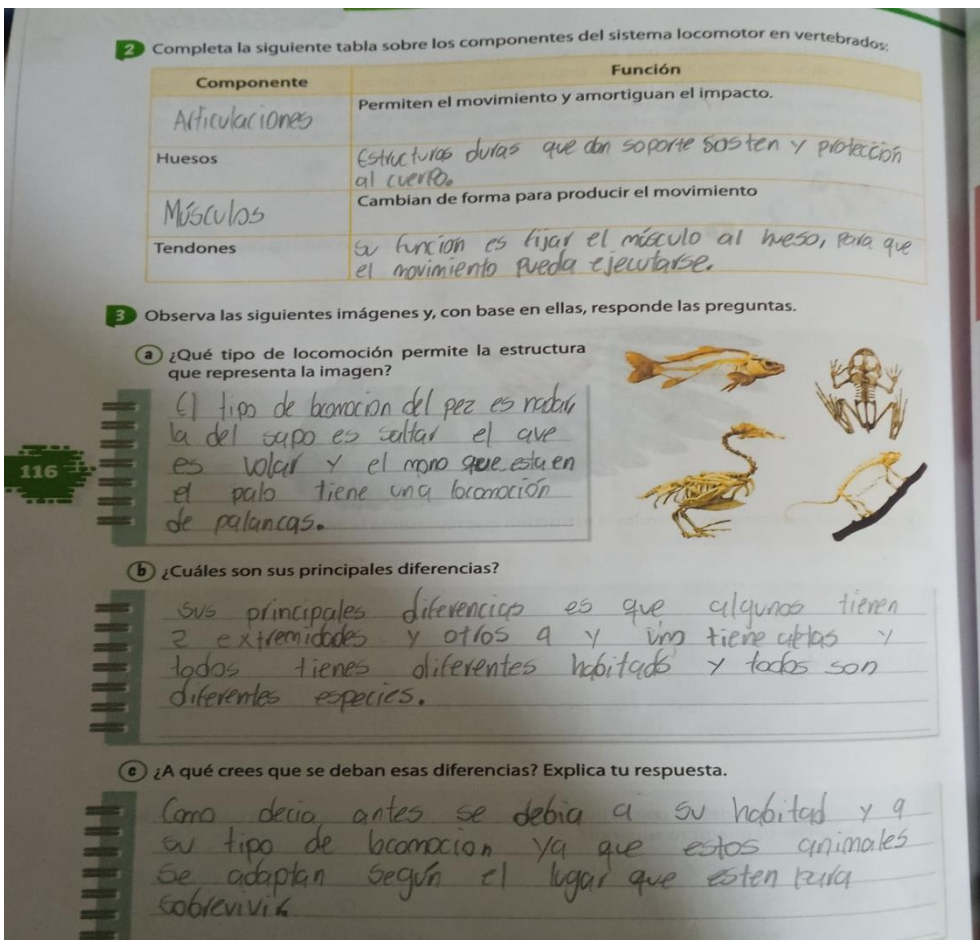 2 Completa la siguiente tabla sobre los componentes del sistema locomotor en vertebrados:
Componente Función
Articulaciones Permiten el movimiento y amortiguan el impacto.
Huesos Estructuras duras que dan soporte sosten y protección
al cuerpo.
Músculos Cambian de forma para producir el movimiento
Tendones Su función es fijar el músculo al hueso, para que
el movimiento pueda ejecutarse.
3 Observa las siguientes imágenes y, con base en ellas, responde las preguntas.
a ¿Qué tipo de locomoción permite la estructura
que representa la imagen?
El tipo de locomoción del pez es nadar,
la del sapo es saltar el ave
es volar y el mono que esta en
el palo tiene una locomoción
de palancas.
116
b ¿Cuáles son sus principales diferencias?
sus principales diferencias es que algunos tienen
2 extremidades y otros 4 y uno tiene aletas y
todos tienes diferentes habitads y todos son
diferentes especies.
c ¿A qué crees que se deban esas diferencias? Explica tu respuesta.
Como decia antes se debia a su habitad y a
su tipo de locomocion ya que estos animales
se adaptan según el lugar que esten para
sobrevivir